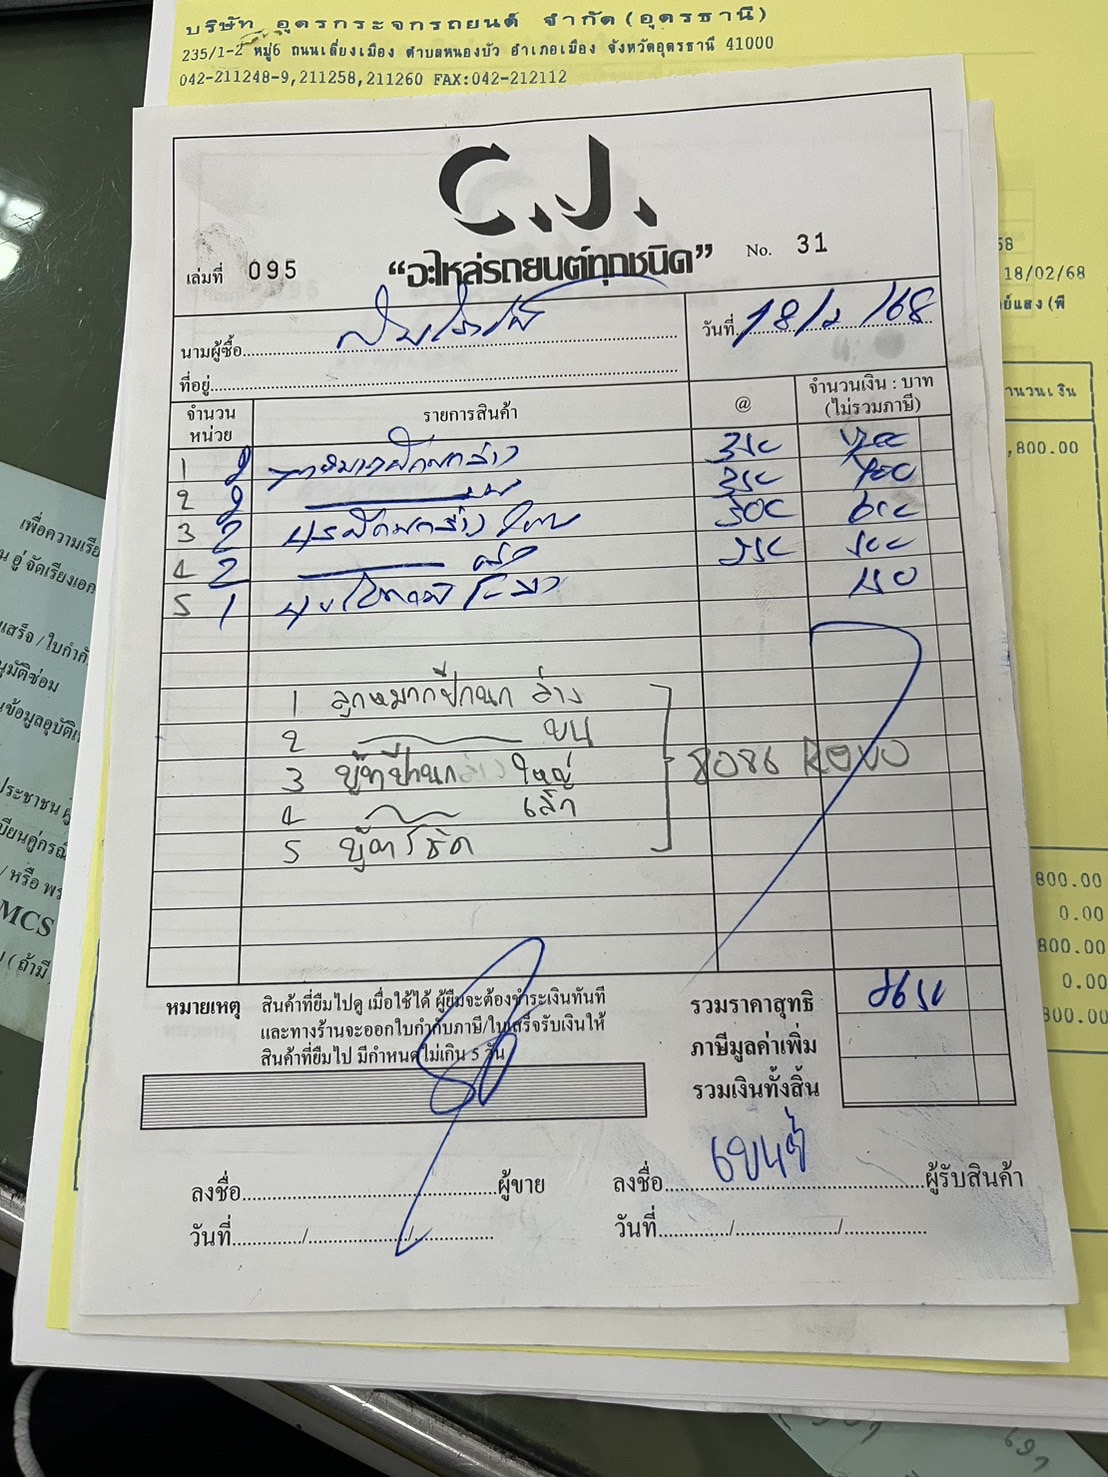 บริษัท อุดรกระจกรถยนต์ จำกัด(อุดรธานี)
235/1-2 หมู่6 ถนนเลี่ยงเมือง ตำบลหนองบัว อำเภอเมือง จังหวัดอุดรธานี 41000
042-211248-9,211258,211260 FAX:042-212112
C.J.
เล่มที่ 095 "อะไหล่รถยนต์ทุกชนิด" No. 31
นามผู้ซื้อ
วันที่ 18/2/68
ที่อยู่
จำนวน หน่วย รายการสินค้า @ จำนวนเงิน : บาท (ไม่รวมภาษี)
1 2 ลูกหมากปีกนกล่าง 350 700
2 2 บน 350 700
3 2 บูชปีกนกล่าง ใหญ่ 300 600
4 2 เล็ก 250 500
5 1 150
1 ลูกหมากปีกนก ล่าง
2 บน
3 บู๊ทปีกนกล่าง ใหญ่
4 เล็ก
5 บู๊ทโช๊ค
8086 REVO
หมายเหตุ สินค้าที่ยืมไปดู เมื่อใช้ได้ ผู้ยืมจะต้องชำระเงินทันที
และทางร้านจะออกใบกำกับภาษี/ใบเสร็จรับเงินให้
สินค้าที่ยืมไป มีกำหนดไม่เกิน 5 วัน
รวมราคาสุทธิ 2650
ภาษีมูลค่าเพิ่ม
รวมเงินทั้งสิ้น
ลงชื่อ ผู้ขาย
ลงชื่อ ผู้รับสินค้า
วันที่ / /
วันที่ / /
68
18/02/68
,800.00
800.00
0.00
800.00
0.00
800.00
เพื่อความเรีย
น อู่ จัดเรียงเอก
เสร็จ / ใบกำกั
นุมัติซ่อม
ข้อมูลอุบัติเ
ประชาชน ผู้
เบียนคู่กรณี
/ หรือ พร
MCS
( ถ้ามี